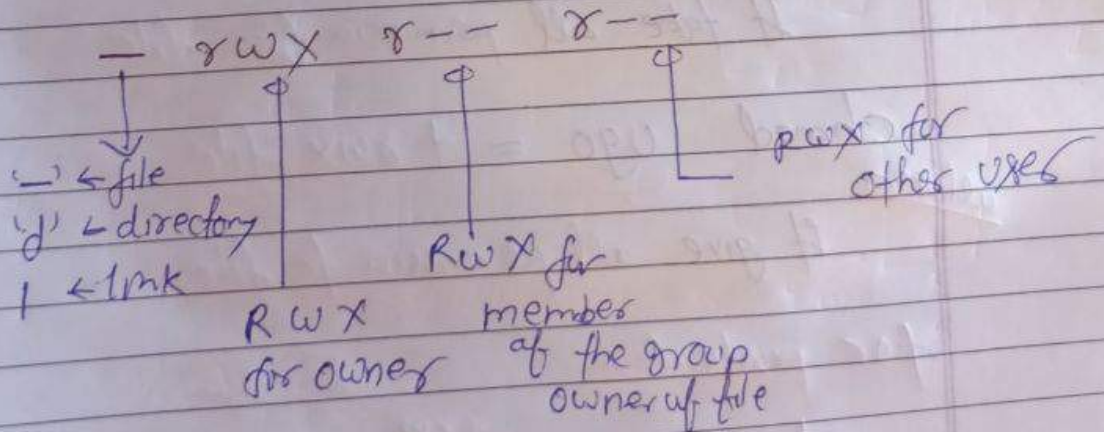 - rwx r-- r--
'-' ← file
'd' ← directory
l ← link
RWX
for owner
RwX for
member
of the group
owner of file
rwx for
other user